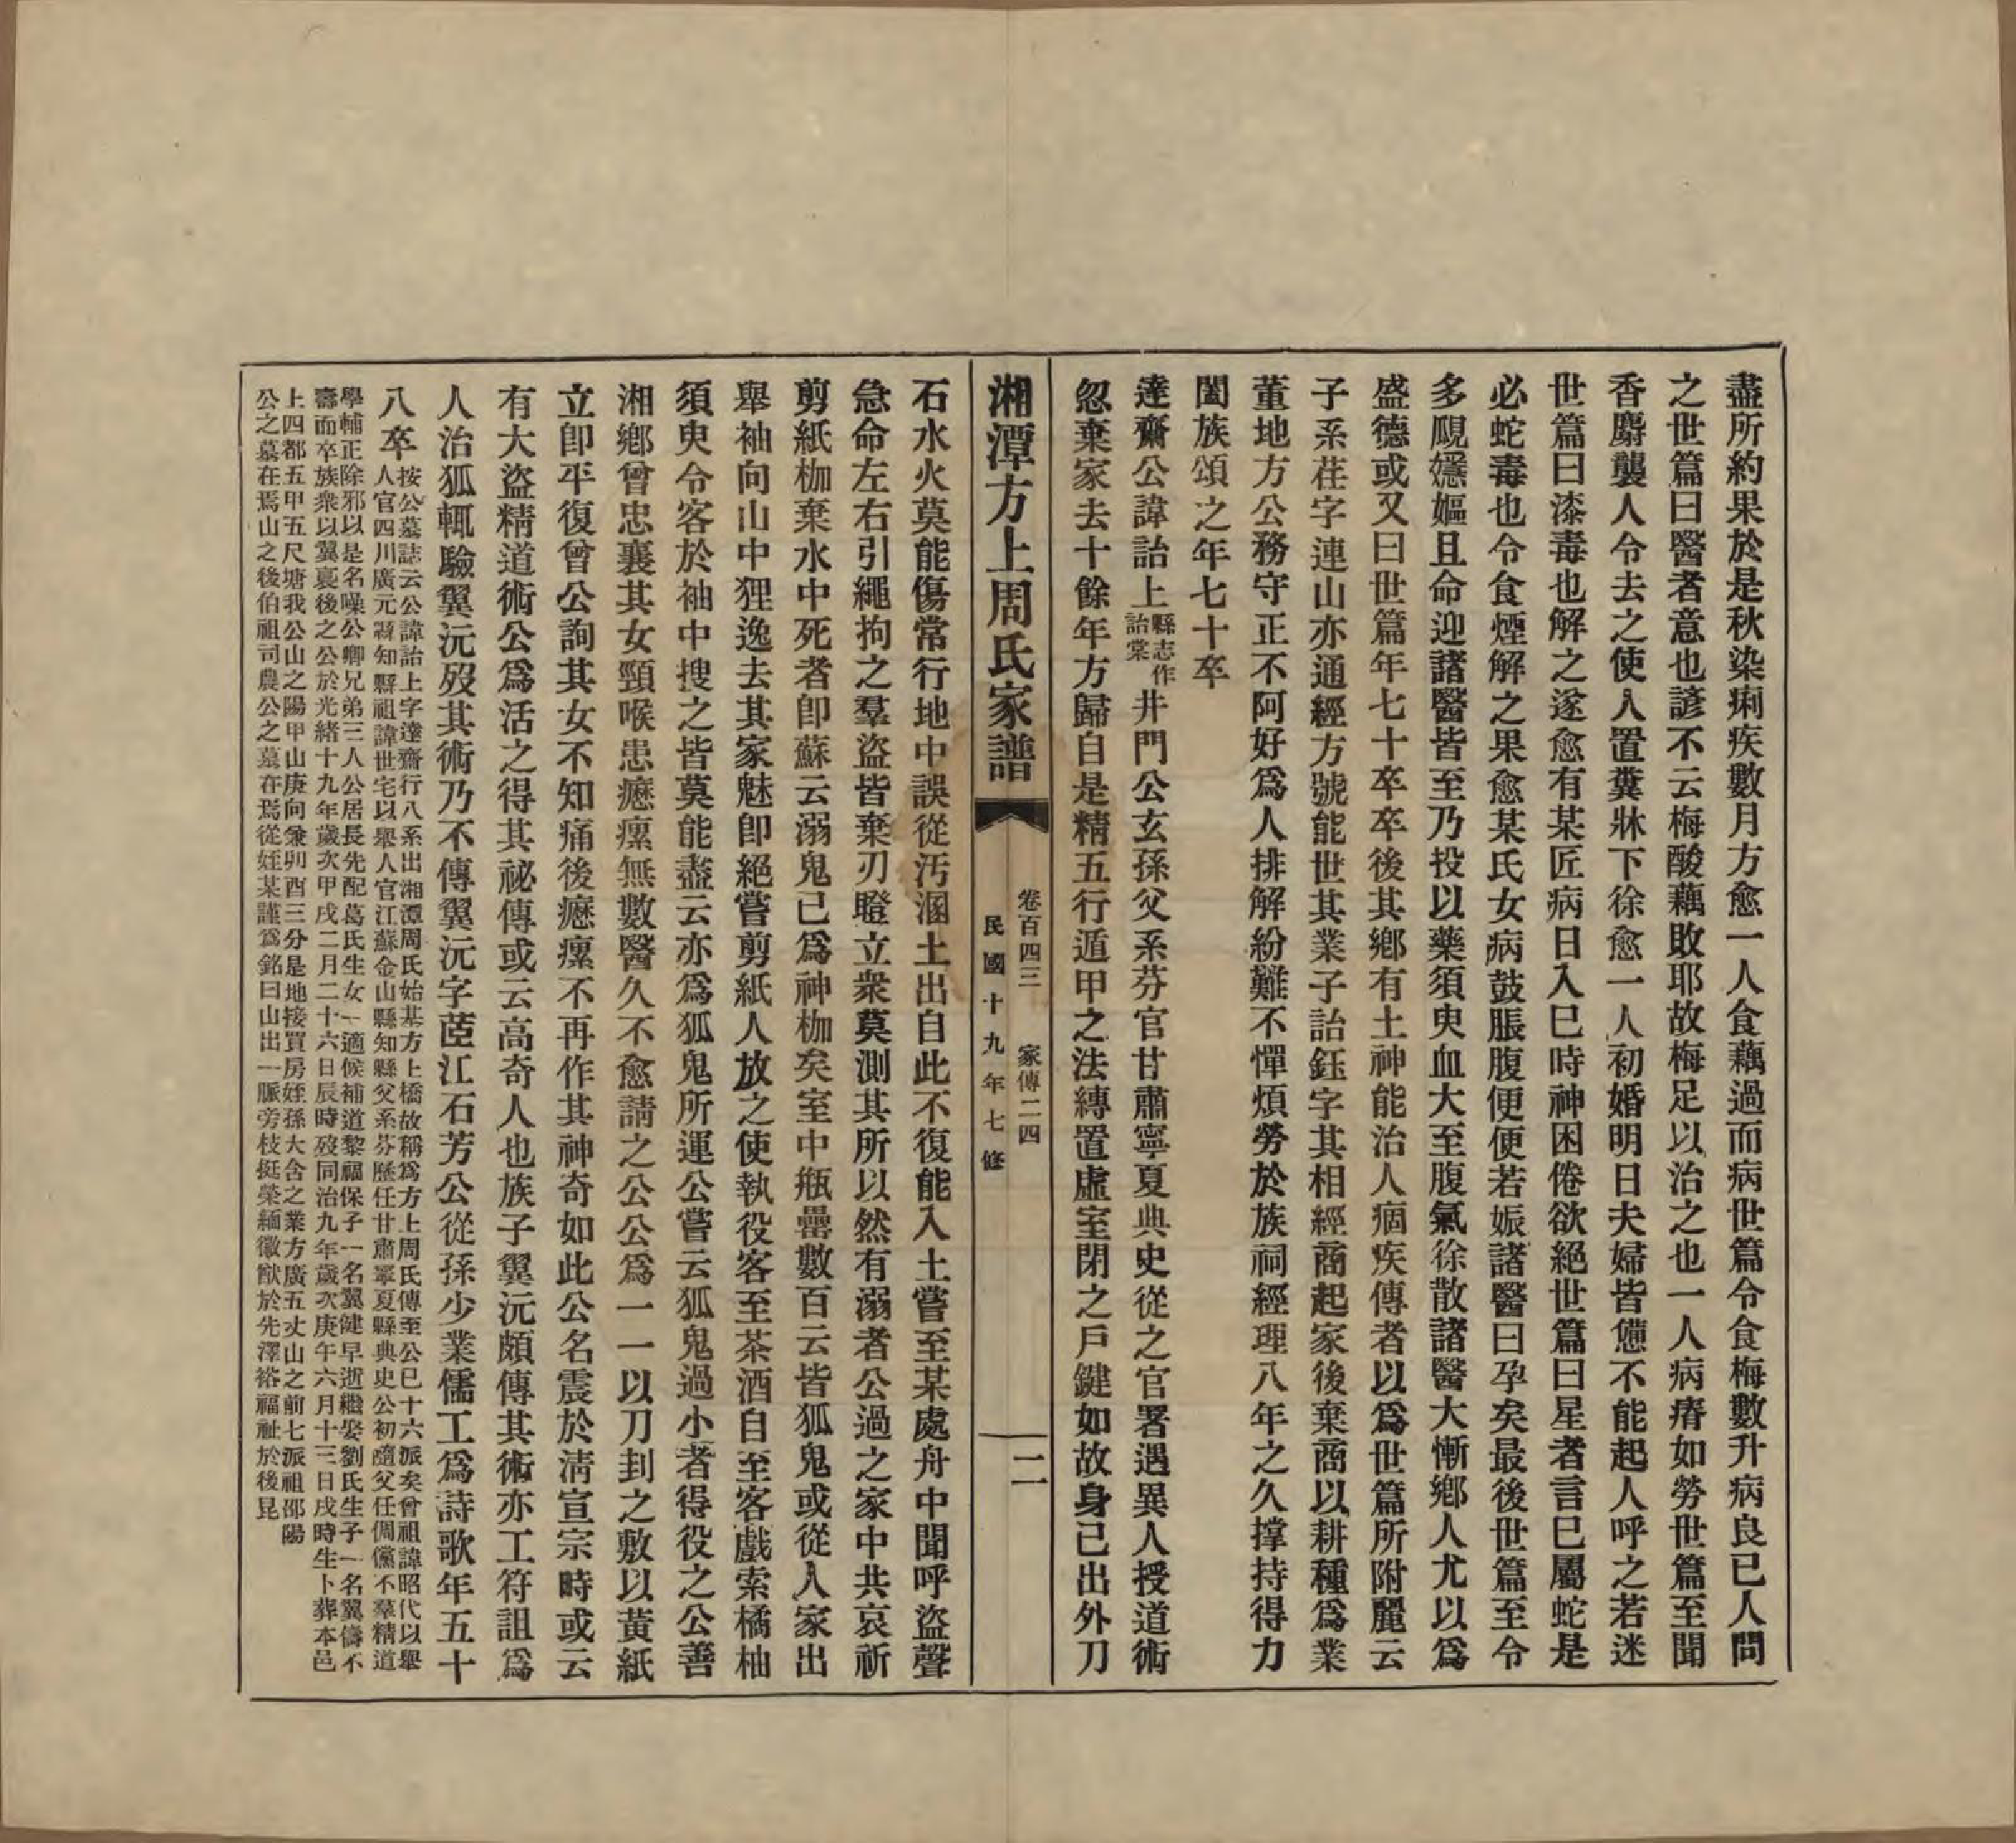 盡所約果於是秋染痢疾數月方愈一人食藕過而病世篇令食梅數升病良已人問
之世篇曰醫者意也諺不云梅酸藕敗耶故梅足以治之也一人病瘠如勞世篇至聞
香麝襲人令去之使人置糞牀下徐愈一人初婚明日夫婦皆憊不能起人呼之若迷
世篇曰漆毒也解之遂愈有某匠病日入巳時神困倦欲絕世篇曰星者言巳屬蛇是
必蛇毒也令食煙解之果愈某氏女病鼓脹腹便便若娠諸醫曰孕矣最後世篇至令
多覘嬺嫗且命迎諸醫皆至乃投以藥須臾血大至腹氣徐散諸醫大慚鄉人尤以爲
盛德或又曰世篇年七十卒卒後其鄉有土神能治人痼疾傳者以爲世篇所附麗云
子系荏字連山亦通經方號能世其業子詒鈺字其相經商起家後棄商以耕種爲業
董地方公務守正不阿好爲人排解紛難不憚煩勞於族祠經理八年之久撐持得力
闔族頌之年七十卒
達齋公諱詒上縣志作詒棠井門公玄孫父系芬官甘肅寧夏典史從之官署遇異人授道術
忽棄家去十餘年方歸自是精五行遁甲之法縛置虛室閉之戶鍵如故身已出外刀
湘潭方上周氏家譜
卷百四三 家傳二四
民國十九年七修
二
石水火莫能傷常行地中誤從汚溷土出自此不復能入土嘗至某處舟中聞呼盜聲
急命左右引繩拘之羣盜皆棄刃瞪立衆莫測其所以然有溺者公過之家中共哀祈
剪紙枷棄水中死者卽蘇云溺鬼已爲神枷矣室中瓶罍數百云皆狐鬼或從人家出
舉袖向山中狸逸去其家魅卽絕嘗剪紙人放之使執役客至茶酒自至客戲索橘柚
須臾令客於袖中搜之皆莫能盡云亦爲狐鬼所運公嘗云狐鬼過小者得役之公善
湘鄉曾忠襄其女頸喉患癧瘰無數醫久不愈請之公公爲一一以刀封之敷以黃紙
立卽平復曾公詢其女不知痛後癧瘰不再作其神奇如此公名震於淸宣宗時或云
有大盜精道術公爲活之得其祕傳或云高奇人也族子翼沅頗傳其術亦工符詛爲
人治狐輒驗翼沅歿其術乃不傳翼沅字茝江石芳公從孫少業儒工爲詩歌年五十
八卒按公墓誌云公諱詒上字達齋行八系出湘潭周氏始基方上橋故稱爲方上周氏傳至公已十六派矣曾祖諱昭代以舉
人官四川廣元縣知縣祖諱世宅以舉人官江蘇金山縣知縣父系芬歷任甘肅寧夏縣典史公初隨父任倜儻不羣精道
學輔正除邪以是名噪公卿兄弟三人公居長先配葛氏生女一適候補道黎福保子一名翼健早逝繼娶劉氏生子一名翼儔不
壽而卒族衆以翼襄後之公於光緒十九年歲次甲戌二月二十六日辰時歿同治九年歲次庚午六月十三日戌時生卜葬本邑
上四都五甲五尺塘我公山之陽甲山庚向兼卯酉三分是地接買房姪孫大含之業方廣五丈山之前七派祖邵陽
公之墓在焉山之後伯祖司農公之墓在焉從姪某謹爲銘曰山出一脈旁枝挺榮緬徽猷於先澤裕福祉於後昆